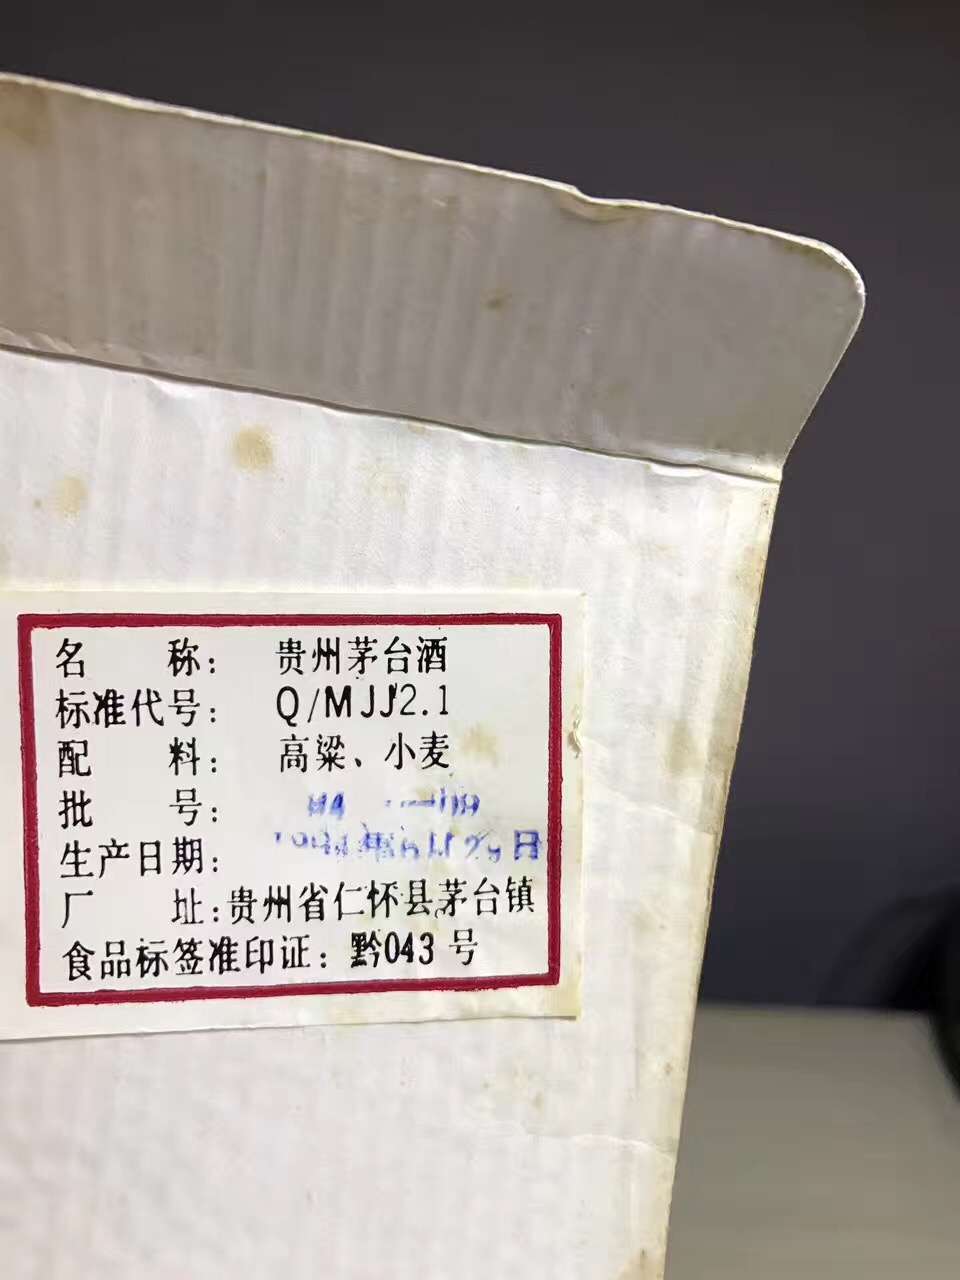 名 称： 贵州茅台酒
标准代号： Q/MJJ2.1
配 料： 高粱、小麦
批 号：
生产日期： 日
厂 址：贵州省仁怀县茅台镇
食品标签准印证：黔043号